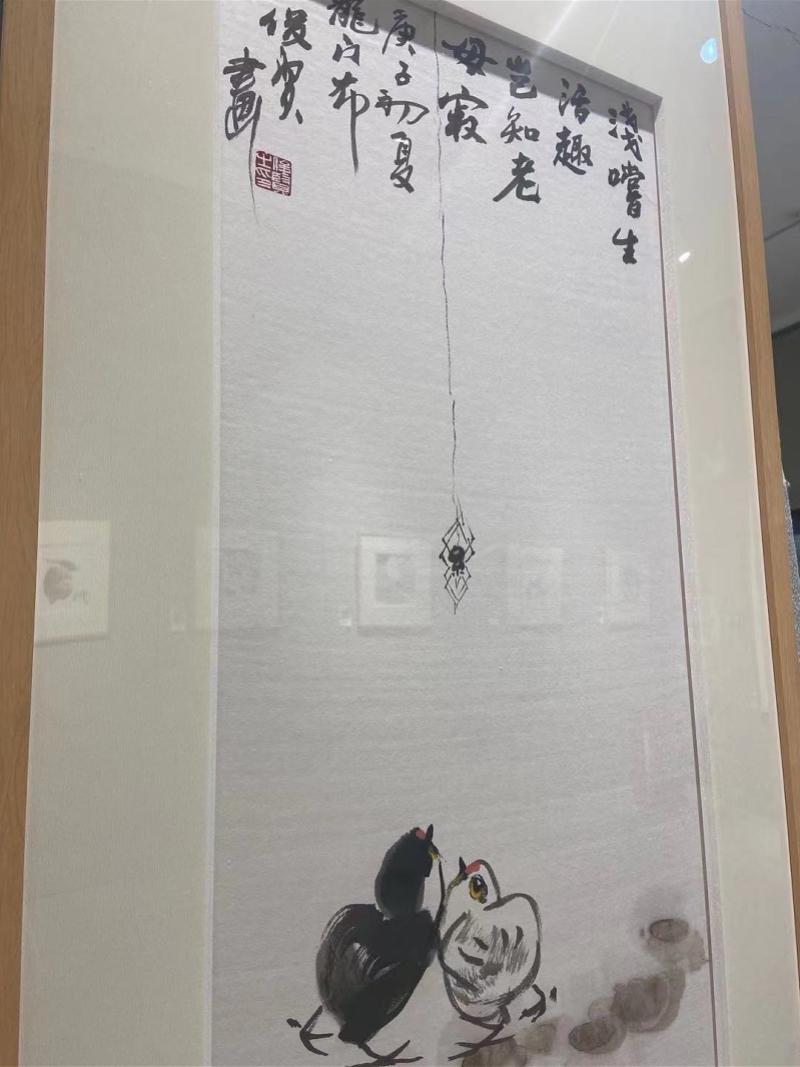 淺嚐生
活趣
豈知老
母寂
庚子初夏
龍门布
俊賢
畫